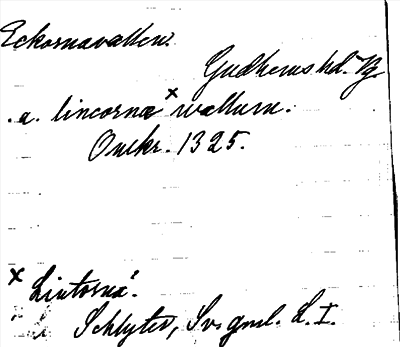 Eckornavallen.
Gudhems hd. Vg
.a. lincorna × wallum.
Omkr. 1325.
× Liutorná.
Schlyter, Sv. gml. L. I.